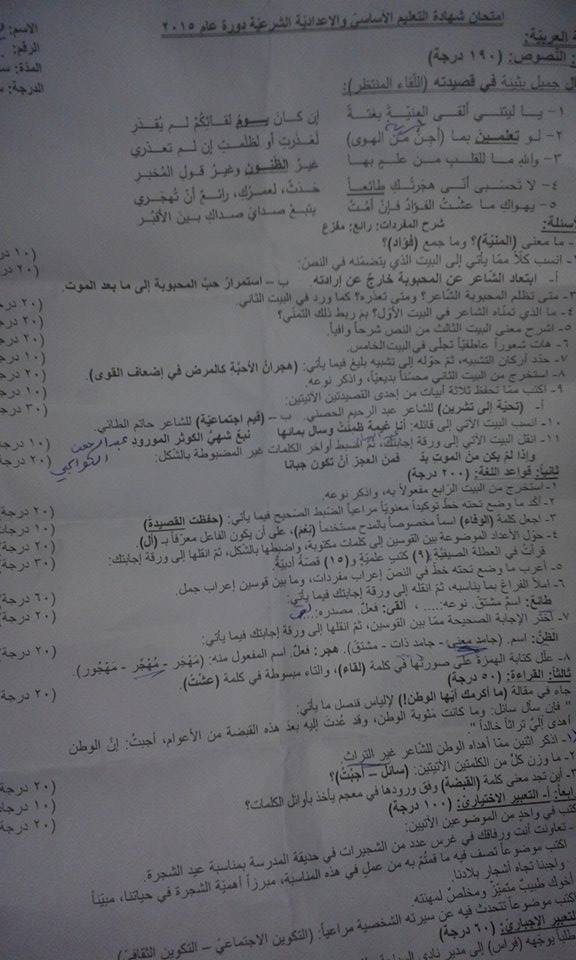 امتحان شهادة التعليم الأساسي والإعدادية الشرعية دورة عام ٢٠١٥
الاسم:
الرقم:
المدة:
الدرجة:
العربية:
النصوص: (١٩٠ درجة)
ال جميل بثينة في قصيدته (اللقاء المنتظر):
١- يا ليتني ألقى المنيّة بغتةً إن كان يومُ لقائكُمْ لم يُقدَرِ
٢- لو تعلمين بما (أجنُّ من الهوى) لعذرتِ أو لظلمتِ إن لم تعذري
٣- والله ما للقلبِ من علمٍ بها غيرُ الظنونِ وغيرُ قولِ المُخبرِ
٤- لا تحسبي أنّي هجرتُكِ طائعاً حدثٌ، لعمرُكِ، رائعٌ أنْ تُهجري
٥- يهواكِ ما عشتُ الفؤادُ فإن أمُتْ يتبعْ صدايَ صداكِ بين الأقبُرِ
شرح المفردات: رائع: مفزع
الأسئلة:
- ما معنى (المنيّة)؟ وما جمع (فؤاد)؟
- انسب كلّاً ممّا يأتي إلى البيت الذي يتضمّنه في النصّ:
أ- ابتعاد الشاعر عن المحبوبة خارجٌ عن إرادته. ب- استمرارُ حبّ المحبوبة إلى ما بعد الموت.
٣- متى تظلم المحبوبة الشاعر؟ ومتى تعذره؟ كما ورد في البيت الثاني.
٤- ما الذي تمنّاه الشاعر في البيت الأول؟ بم ربط ذلك التمنّي؟
٥- اشرح معنى البيت الثالث من النص شرحاً وافياً.
٦- هات شعوراً عاطفيّاً تجلّى في البيت الخامس.
٧- حدّد أركان التشبيه، ثمّ حوّله إلى تشبيه بليغ فيما يأتي: (هجرانُ الأحبّة كالمرض في إضعاف القوى).
٨- استخرج من البيت الثاني محسّناً بديعيّاً، واذكر نوعه.
٩- اكتب ممّا تحفظ ثلاثة أبيات من إحدى القصيدتين الآتيتين:
أ- (تحيّة إلى تشرين) للشاعر عبد الرحيم الحصني. ب- (قيم اجتماعيّة) للشاعر حاتم الطائي.
١٠- انسب البيت الآتي إلى قائله: أنا غيمةٌ ظمئتْ وسال بمائها نبعٌ شهيُّ الكوثر المورودِ
١١- انقل البيت الآتي إلى ورقة إجابتك، ثمّ اضبط أواخر الكلمات غير المضبوطة بالشكل:
وإذا لم يكن من الموتِ بدّ فمن العجز أنْ تكون جبانا
ثانياً: قواعد اللغة: (٢٠٠ درجة)
١- استخرج من البيت الرّابع مفعولاً به، واذكر نوعه.
٢- أكّد ما وضع تحته خطّ توكيداً معنويّاً مراعياً الضبط الصحيح فيما يأتي: (حفظت القصيدة)
٣- اجعل كلمة (الوفاء) اسماً مخصوصاً بالمدح مستخدماً (نِعْمَ)، على أن يكون الفاعل معرّفاً بـ (أل).
٤- حوّل الأعداد الموضوعة بين القوسين إلى كلمات مكتوبة، واضبطها بالشكل، ثمّ انقلها إلى ورقة إجابتك:
قرأتُ في العطلة الصيفيّة (٩) كتبٍ علميّة و(١٥) قصّةً أدبيّة.
٥- أعرب ما وضع تحته خطّ في النصّ إعراب مفردات، وما بين قوسين إعراب جمل.
٦- املأ الفراغ بما يناسبه، ثمّ انقله إلى ورقة إجابتك فيما يأتي:
طائع: اسم مشتقّ. نوعه: ....، ألقى: فعلٌ. مصدره: ....
٧- اختر الإجابة الصحيحة ممّا بين القوسين، ثمّ انقلها إلى ورقة إجابتك فيما يأتي:
الظنّ: اسم. (جامد معنى - جامد ذات - مشتقّ). هجر: فعلٌ. اسم المفعول منه: (مَهْجَر - مُهْجَر - مَهْجُور).
٨- علّل كتابة الهمزة على صورتها في كلمة (لقاء)، والتاء مبسوطة في كلمة (عشتُ).
ثالثاً: القراءة: (٥٠ درجة)
جاء في مقالة (ما أكرمك أيّها الوطن!) لإلياس قنصل ما يأتي:
" فإن سأل سائل: وما كانت مثوبة الوطن، وقد عدت إليه بعد هذه القبضة من الأعوام، أجبتُ: إنّ الوطن أهدى إليّ تراثاً خالداً "
١- اذكر اثنين ممّا أهداه الوطن للشّاعر غير التراث.
٢- ما وزن كلّ من الكلمتين الآتيتين: (سائل - أجبتُ)؟
٣- أين تجد معنى كلمة (القبضة) وفق ورودها في معجم يأخذ بأوائل الكلمات؟
رابعاً: أ- التعبير الاختياري: (١٠٠ درجة)
اكتب في واحدٍ من الموضوعين الآتيين:
- تعاونت أنت ورفاقك في غرس عدد من الشجيرات في حديقة المدرسة بمناسبة عيد الشجرة.
اكتب موضوعاً تصف فيه ما قمتم به من عمل في هذه المناسبة، مبرزاً أهميّة الشجرة في حياتنا، مبيّناً واجبنا تجاه أشجار بلادنا.
- أخوك طبيبٌ متميّزٌ ومخلصٌ لمهنته
اكتب موضوعاً تتحدّث فيه عن سيرته الشخصية مراعياً: (التكوين الاجتماعيّ - التكوين الثقافيّ
التعبير الإجباري: (٦٠ درجة)
طلباً يوجهه (فراس) إلى مدير نادي